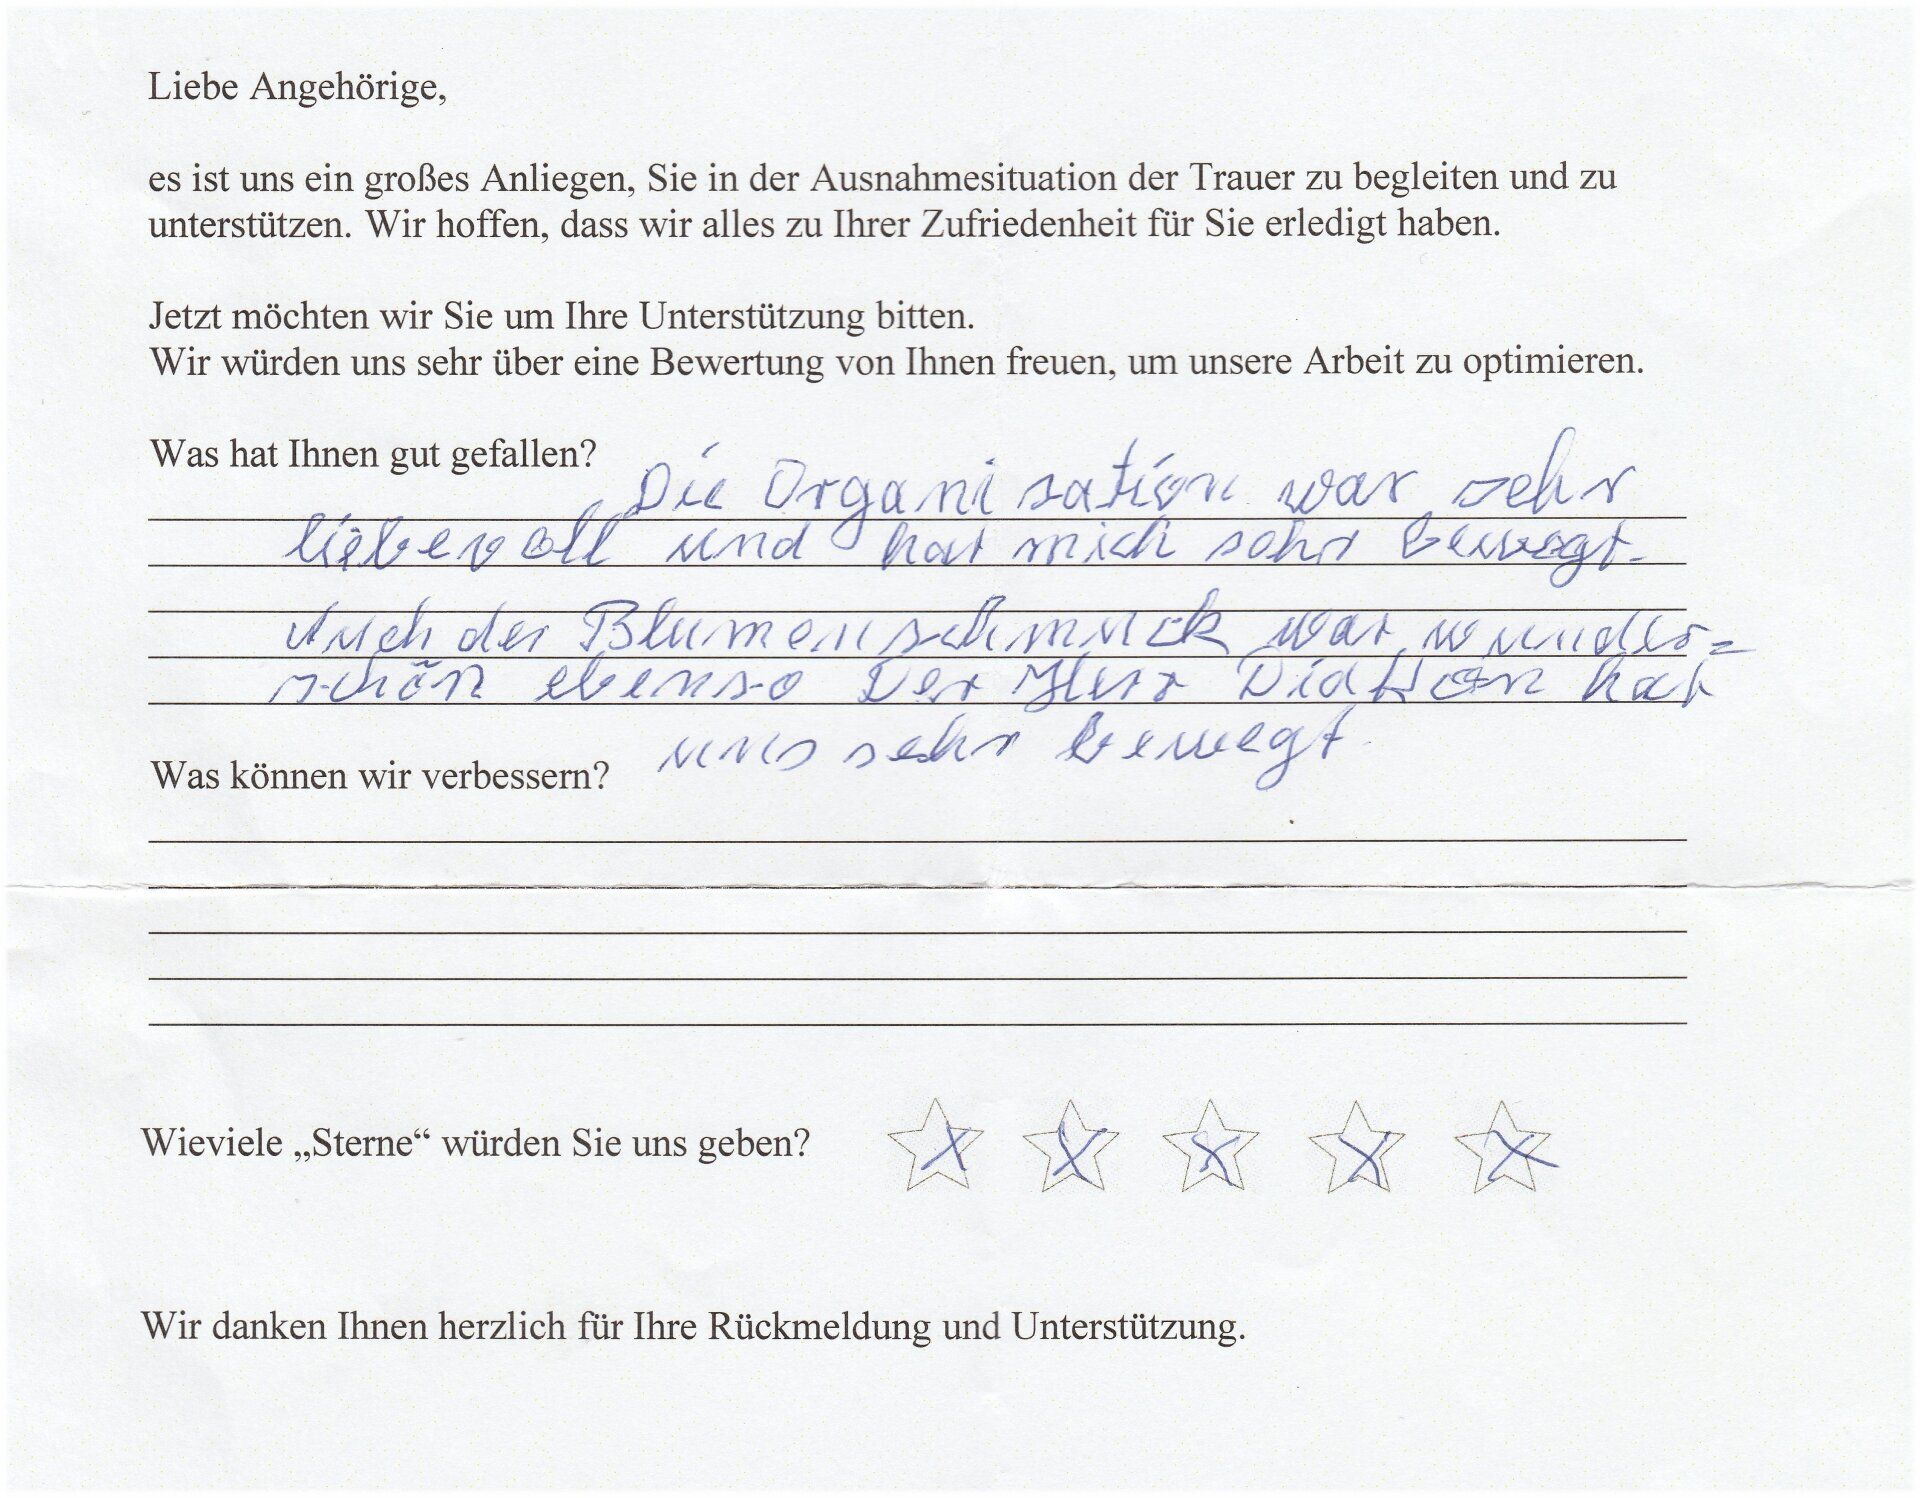 Liebe Angehörige,
es ist uns ein großes Anliegen, Sie in der Ausnahmesituation der Trauer zu begleiten und zu
unterstützen. Wir hoffen, dass wir alles zu Ihrer Zufriedenheit für Sie erledigt haben.
Jetzt möchten wir Sie um Ihre Unterstützung bitten.
Wir würden uns sehr über eine Bewertung von Ihnen freuen, um unsere Arbeit zu optimieren.
Was hat Ihnen gut gefallen?
Die Organisation war sehr
liebevoll und hat mich sehr bewegt.
Auch der Blumenschmuck war wunder=
schön ebenso Der Herr hat
uns sehr bewegt.
Was können wir verbessern?
Wieviele „Sterne“ würden Sie uns geben? x x x x x
Wir danken Ihnen herzlich für Ihre Rückmeldung und Unterstützung.